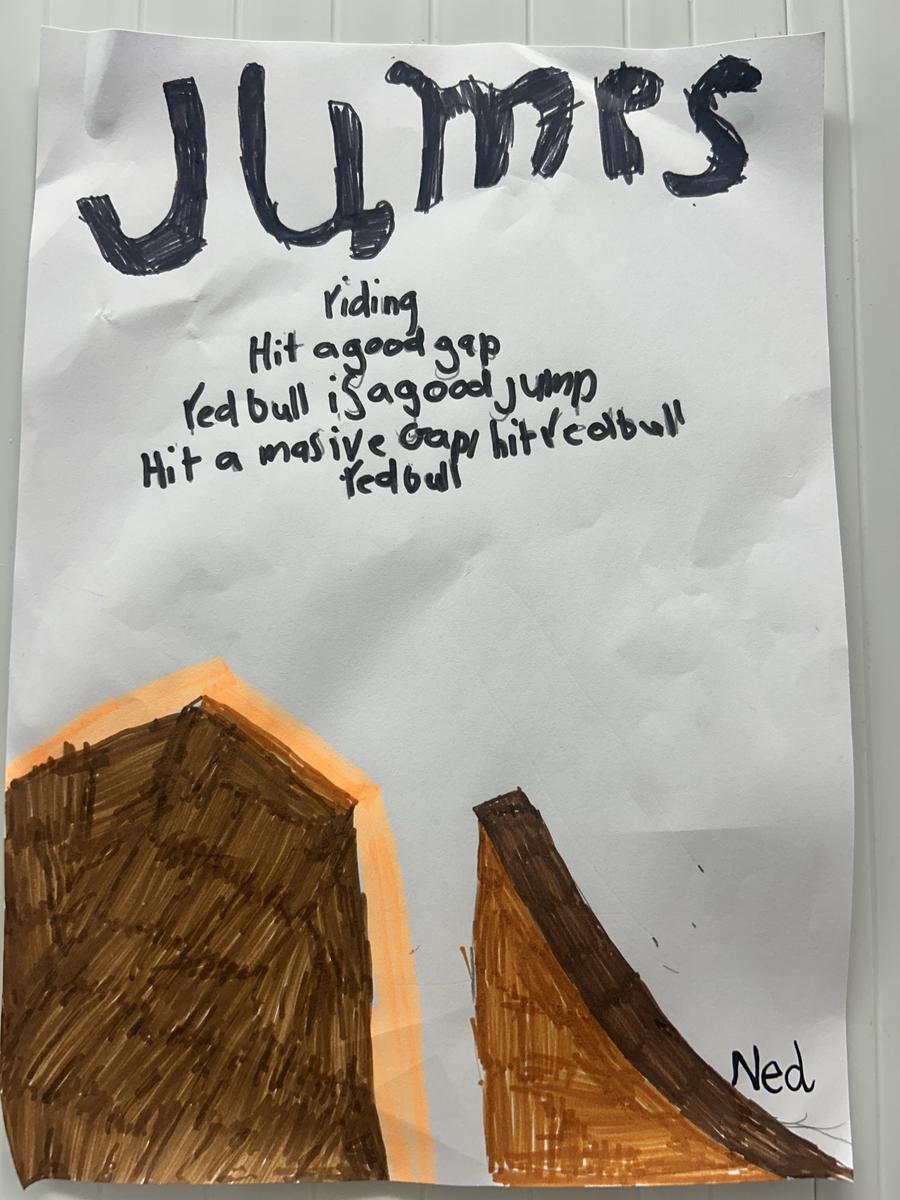 Jumps
riding
Hit a good gap
red bull is a good jump
Hit a masive Gap, hit redbull
red bull
Ned